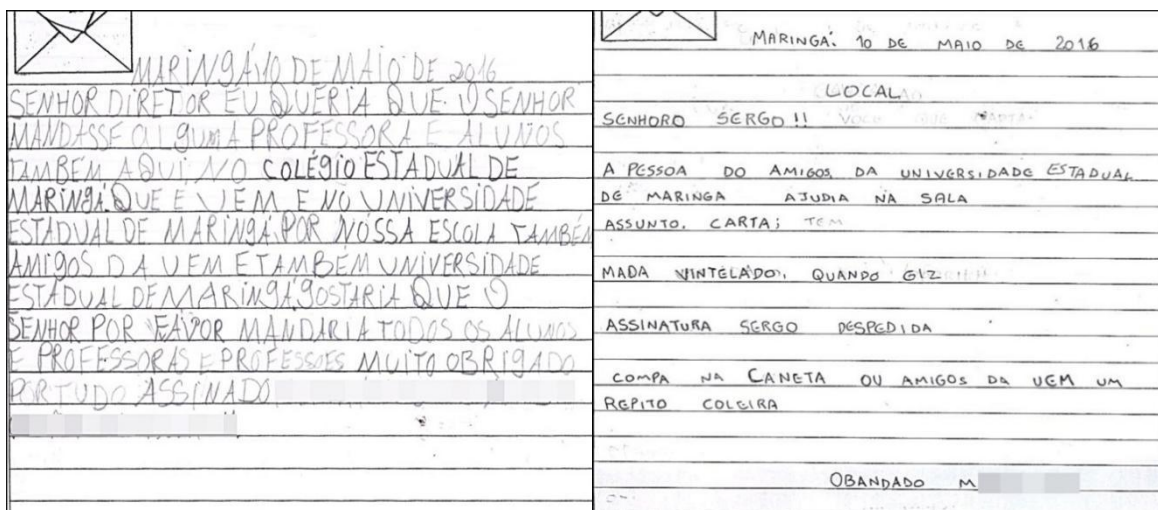 MARINGÁ, 10 DE MAIO DE 2016
SENHOR DIRETOR EU QUERIA QUE O SENHOR
MANDASSE ALGUMA PROFESSORA E ALUNOS
TAMBÉM AQUI NO COLÉGIO ESTADUAL DE
MARINGÁ. QUE E UEM E NO UNIVERSIDADE
ESTADUAL DE MARINGÁ. POR NÓSSA ESCOLA TAMBÉM
AMIGOS DA UEM E TAMBÉM UNIVERSIDADE
ESTADUAL DE MARINGÁ. GOSTARIA QUE O
SENHOR POR FAVOR MANDARIA TODOS OS ALUNOS
E PROFESSORAS E PROFESSOES MUITO OBRIGADO
POR TUDO ASSINADO
MARINGÁ. 10 DE MAIO DE 2016
LOCAL
SENHORO SERGO !!
A PESSOA DO AMIGOS DA UNIVERSIDADE ESTADUAL
DE MARINGA AJUDIA NA SALA
ASSUNTO. CARTA; TEM
MADA VINTELADO, QUANDO GIZ
ASSINATURA SERGO DESPEDIDA
COMPA NA CANETA OU AMIGOS DA UEM UM
REPITO COLEIRA
OBANDADO M